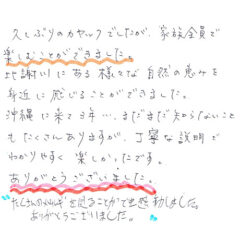 久しぶりのカヤックでしたが、家族全員で
楽しむことができました。
比謝川にある様々な自然の恵みを
身近に感じることができました。
沖縄に来て3年…、まだまだ知らないこと
もたくさんありますが、丁寧な説明で
わかりやすく楽しかったです。
ありがとうございました。
たくさんの を見ることができ感動しました。
ありがとうございました。